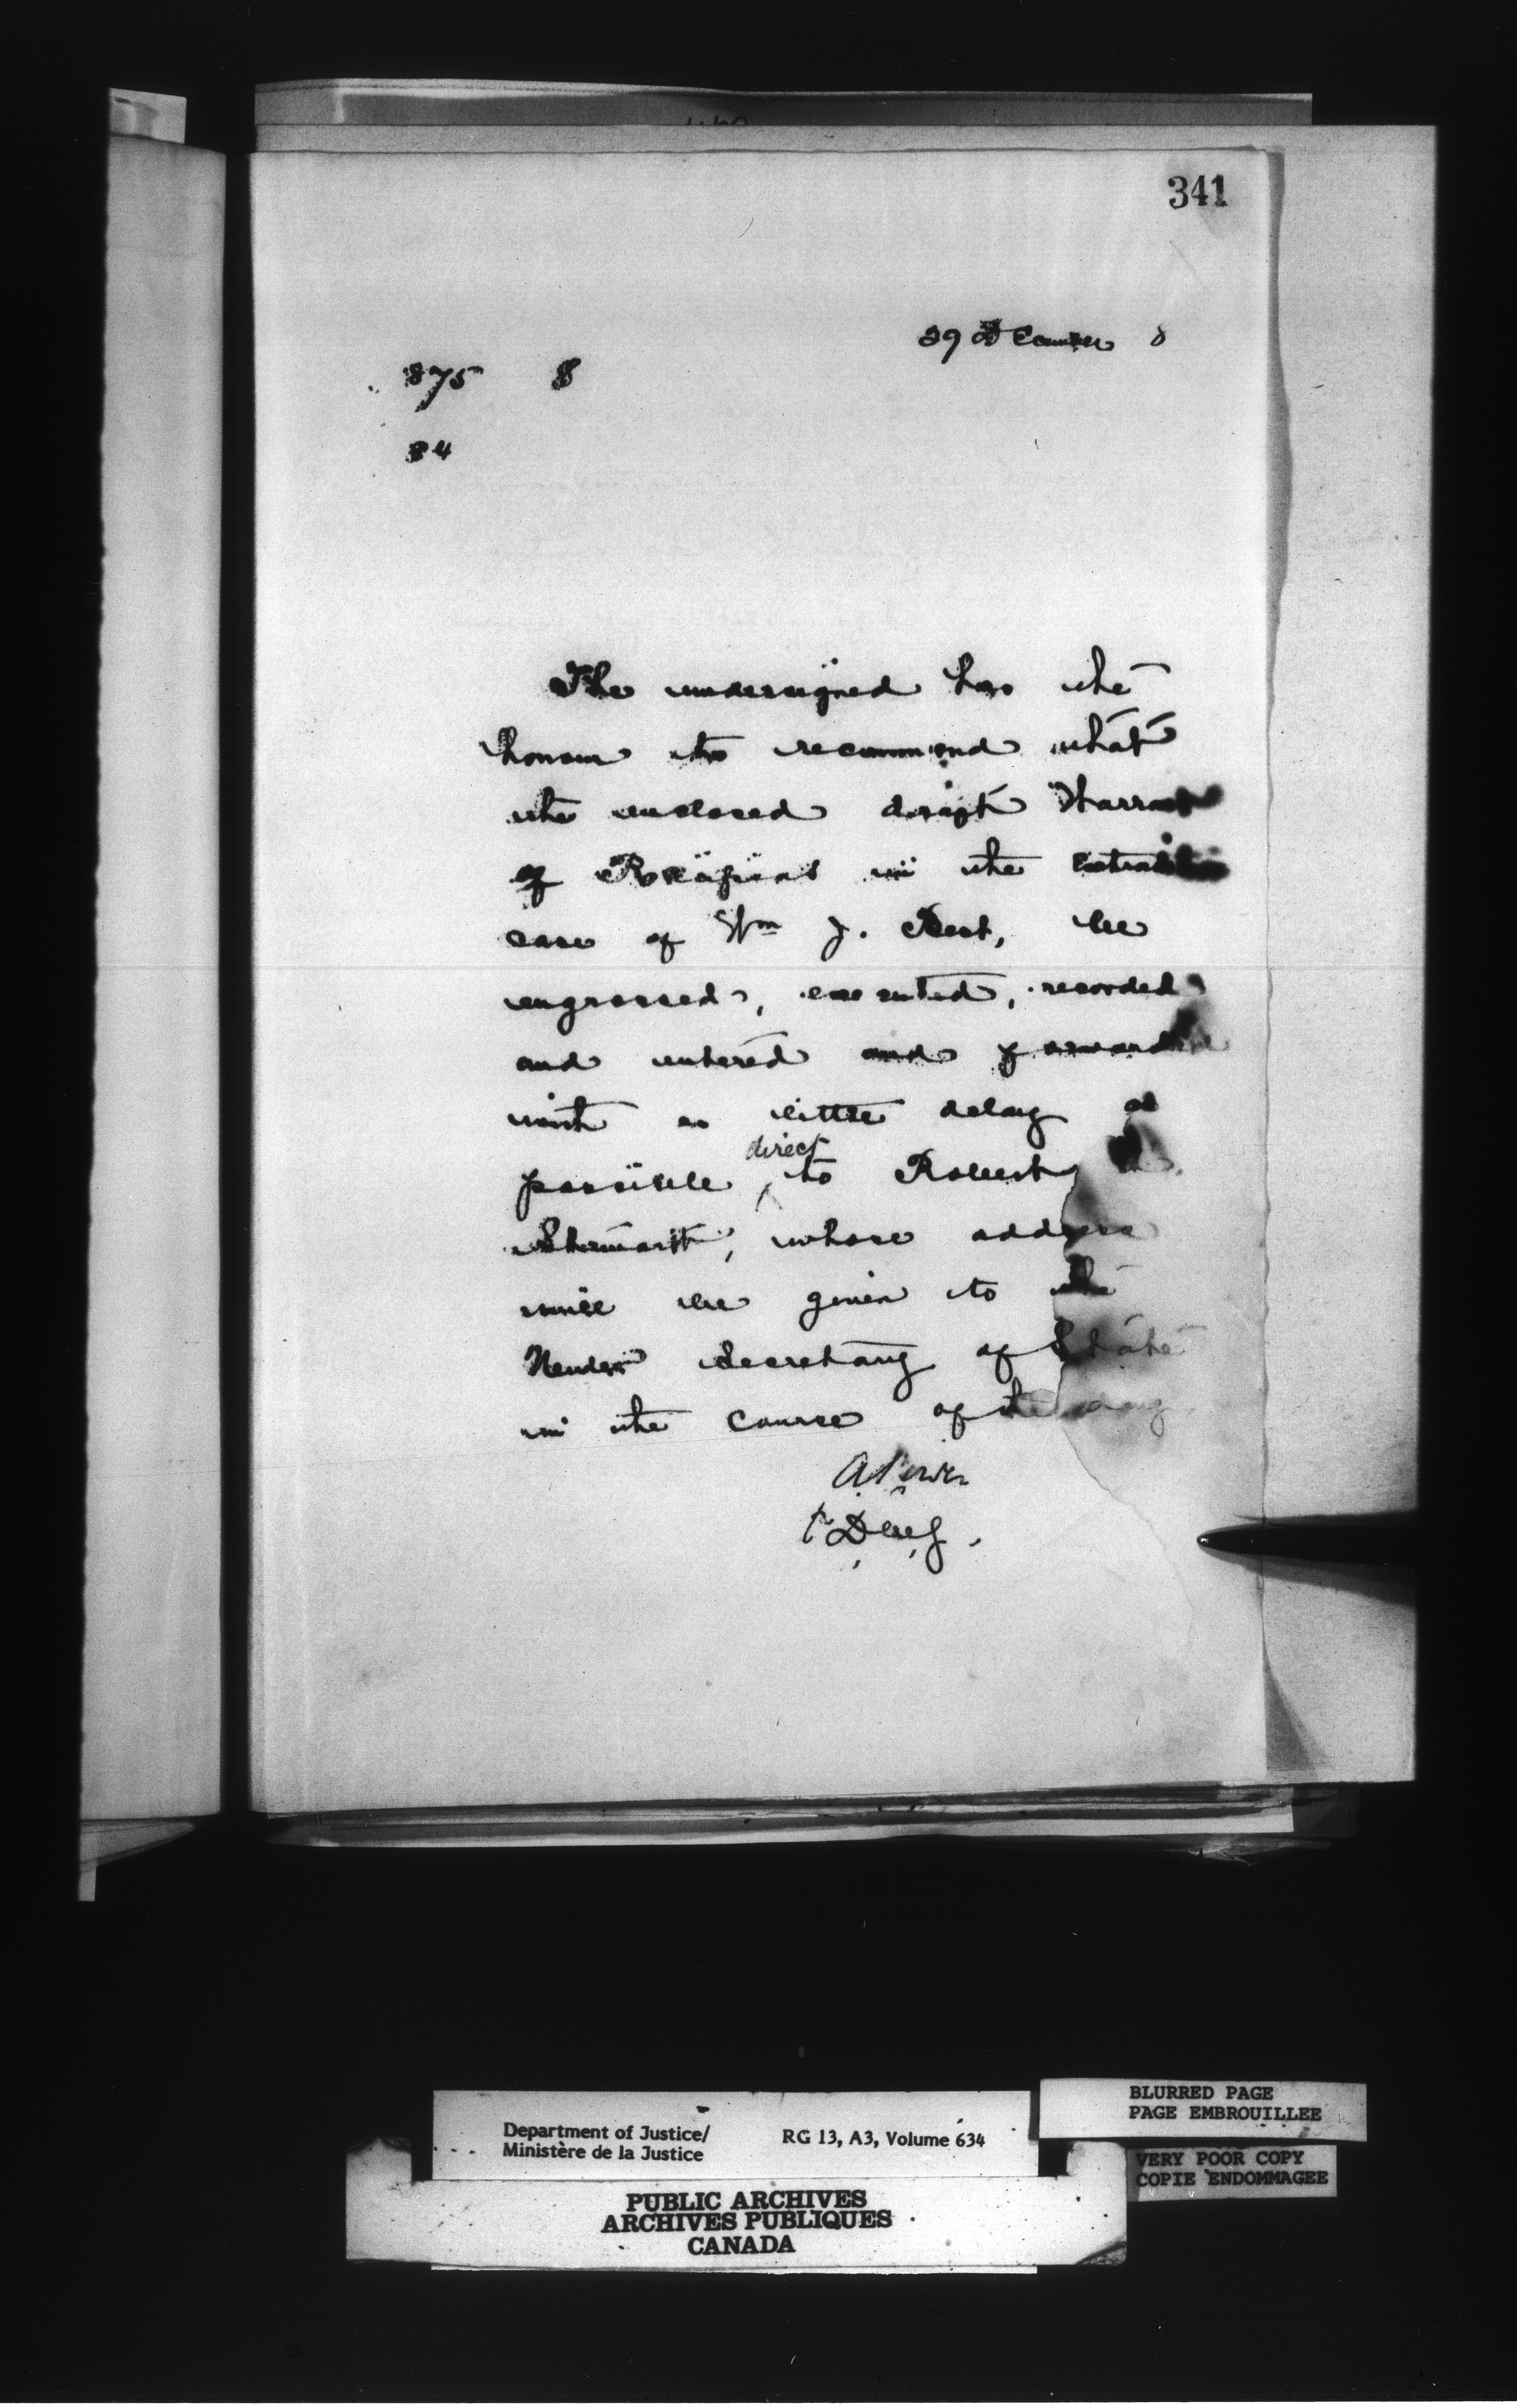 341
29 December 8
875 8
84
The undersigned has the
honour to recommend that
the enclosed draft Warrant
of Recipias in the extradition
case of Wm J. Best, be
engrossed, executed, recorded
and entered and forwarded
with as little delay as
possible direct to Robert
Stewart, whose address
will be given to the
Under Secretary of State
in the course of the day
A Power
Department of Justice/
Ministère de la Justice
RG 13, A3, Volume 634
PUBLIC ARCHIVES
ARCHIVES PUBLIQUES
CANADA
BLURRED PAGE
PAGE EMBROUILLEE
VERY POOR COPY
COPIE ENDOMMAGEE